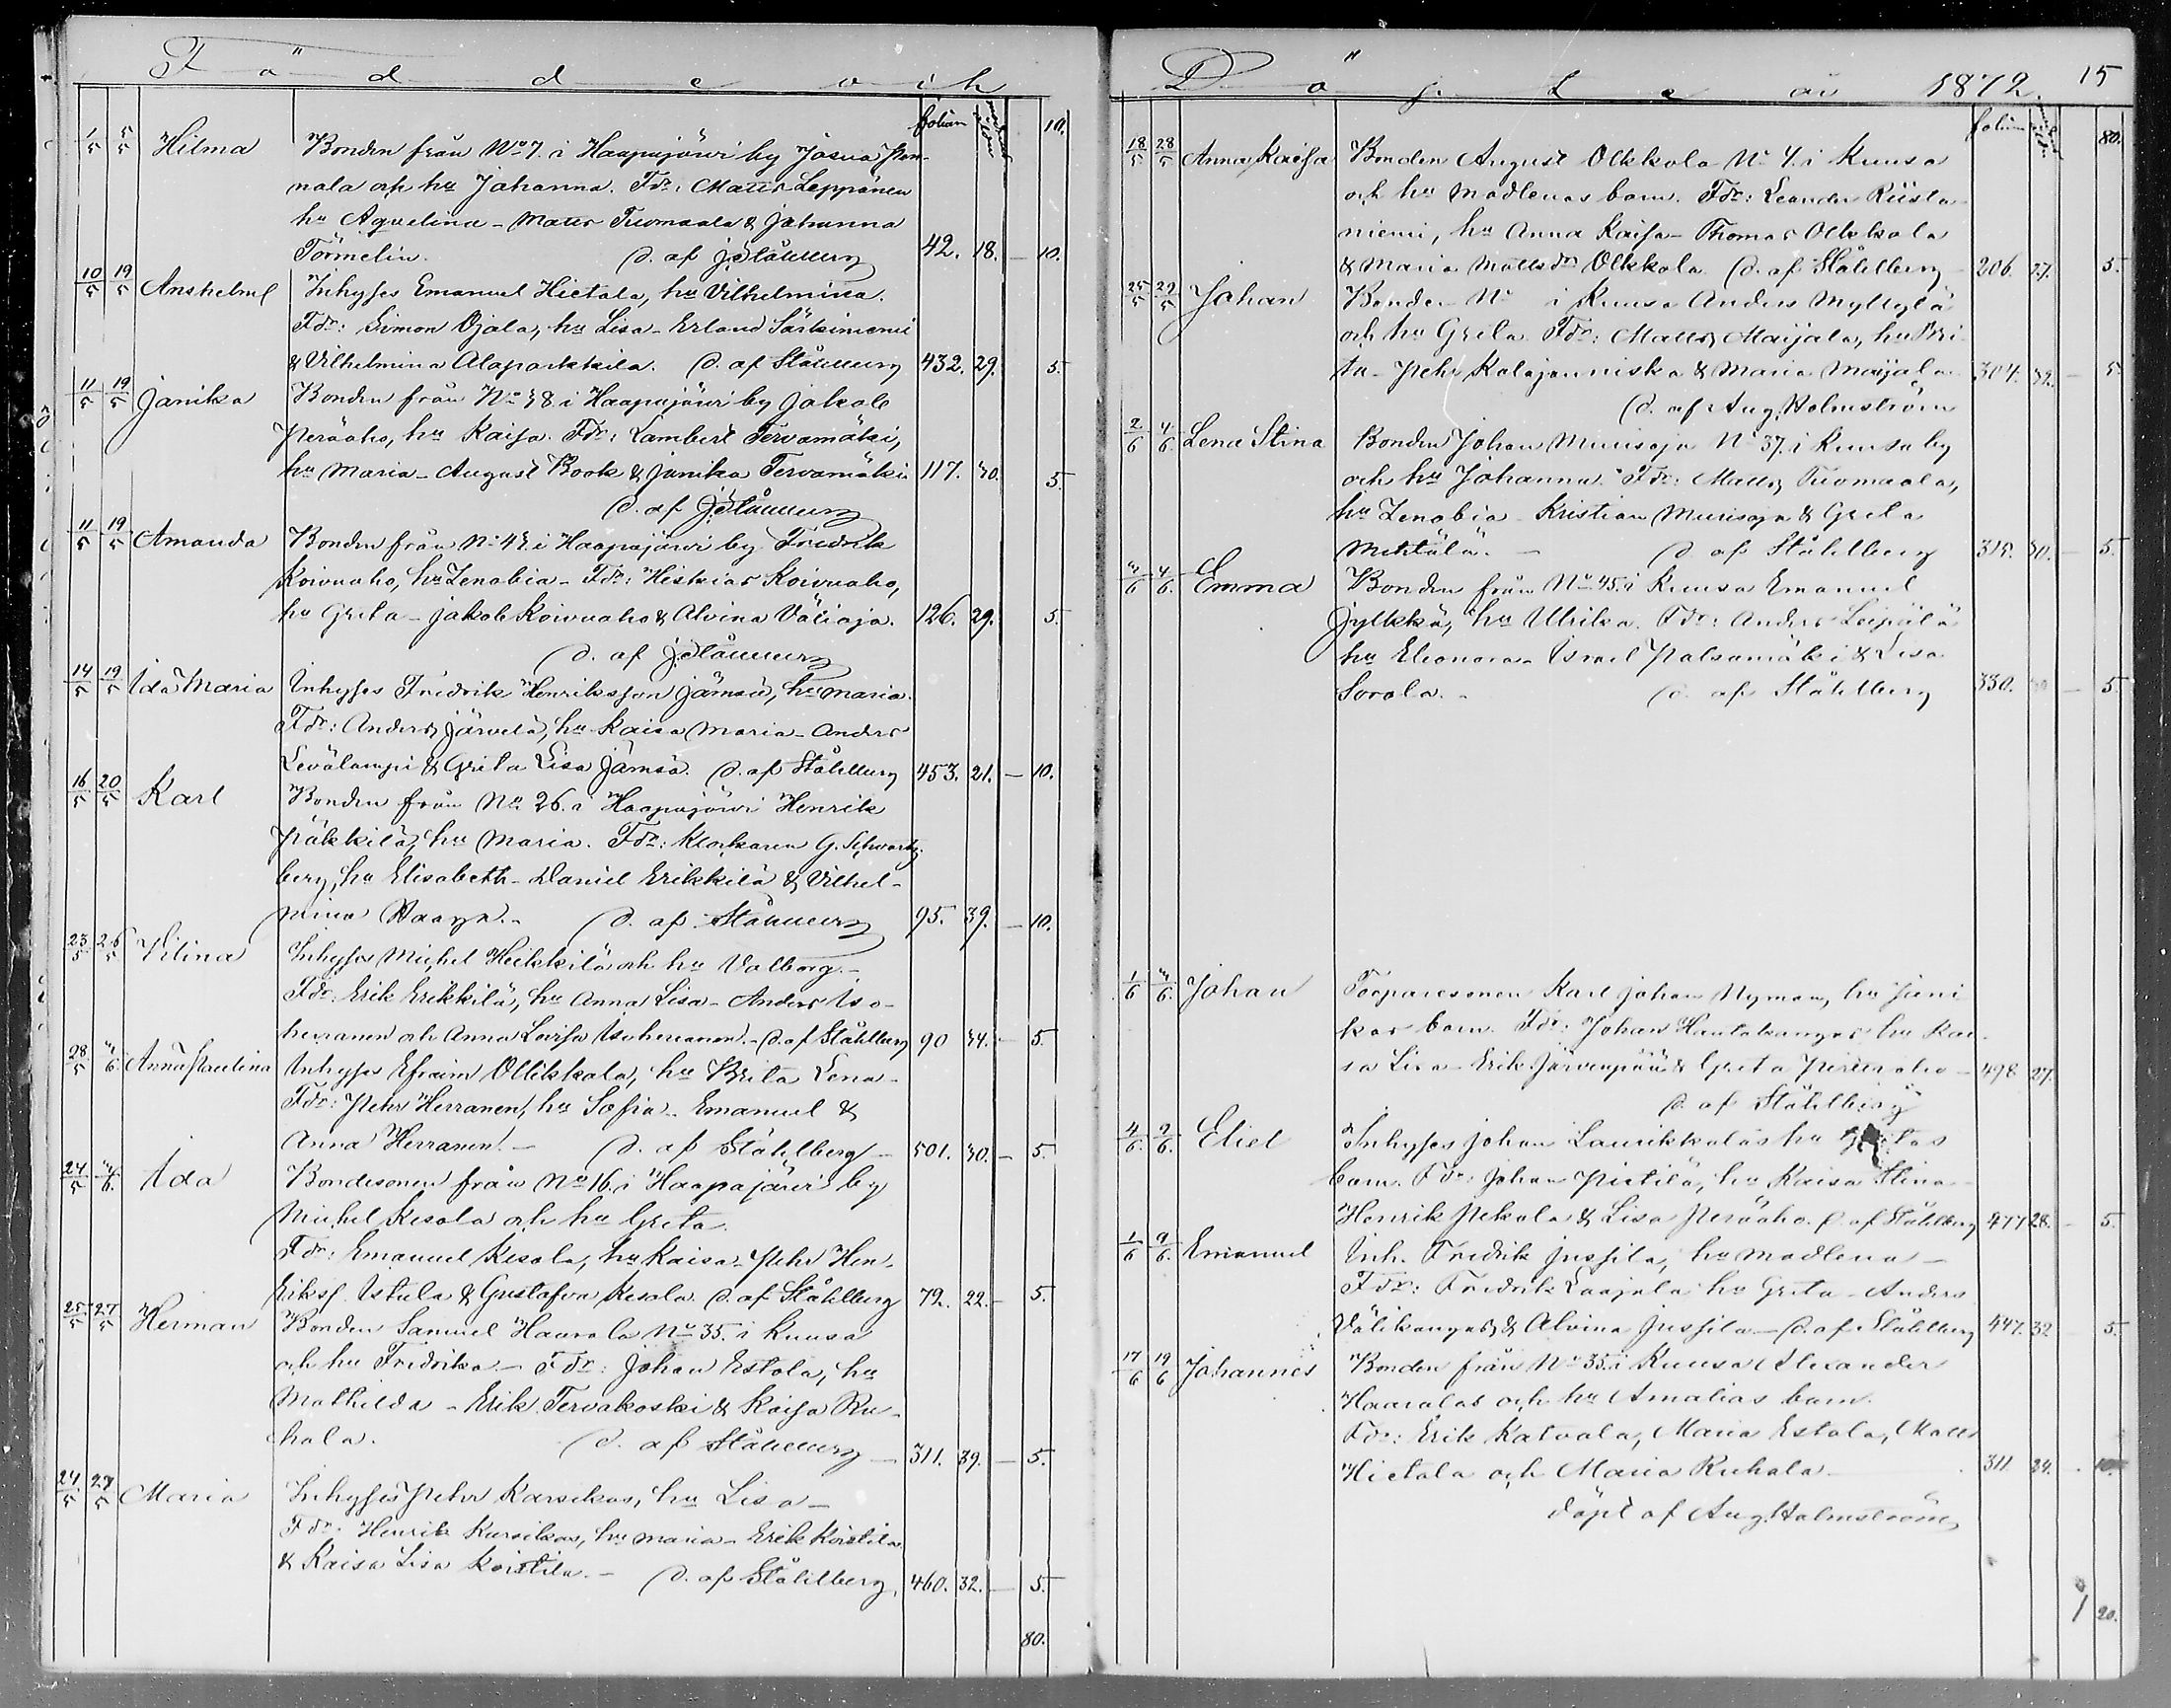 Födde och
folium
10.
1/5 5/5 Hilma Bonden från No 7. i Haapajärwi by Josua Pon-
nala och hu Johanna. Fdr: Matts Leppänen
hu Aquelina - Matts Tuomaala & Johanna
Törmelin. d. af J. Ståhlberg 42. 18. - 10.
10/5 19/5 Anshelm Inhyses Emanuel Hietala, hu Vilhelmina.
Fdr: Simon Ojala, hu Lisa - Erland Särkiniemi
& Vilhelmina Alaparkkila. d. af Ståhlberg 432. 29. 5.
11/5 19/5 Janika Bonden från No 58 i Haapajärwi by Jakob
Peräaho, hu Kaisa. Fdr: Lambert Tervamäki,
hu Maria - August Book & Janika Tervamäki 117. 30. 5.
d. af J. Ståhlberg
11/5 19/5 Amanda Bonden från No 45 i Haapajärwi by Fredrik
Koivuaho, hu Zenobia - Fdr: Hiskias Koivuaho,
hu Greta - Jakob Koivuaho & Alvina Välioja. 126. 29. 5.
d. af J. Ståhlberg
14/5 19/5 Ida Maria Inhyses Fredrik Henriksson Jämsä, hu Maria.
Fdr: Anders Järvelä, hu Kaisa Maria - Anders
Levälampi & Greta Lisa Jämsä. d. af Ståhlberg 453. 21. - 10.
16/5 20/5 Karl Bonden från No 26. i Haapajärwi Henrik
Päkkilä, hu Maria. Fdr: Klockaren G. Schwartz-
berg, hu Elisabeth - Daniel Erikkilä & Vilhel-
mina Haaga. - d. af Ståhlberg 95. 39. - 10.
23/5 26/5 Vilina Inhyses Michel Heikkilä och hu Valborg. -
Fdr: Erik Erikkilä, hu Anna Lisa - Anders Iso-
herranen och Anna Lovisa Isoherranen. - d. af Ståhlberg 90 34. - 5.
28/5 Anna Paulina Inhyses Efraim Ollikkala, hu Brita Lena -
Fdr: Pehr Herranen, hu Sofia - Emanuel &
Anna Herranen. - d. af Ståhlberg - 501. 30. - 5.
24/5 Ida Bondesonen från No 16. i Haapajärwi by
Michel Kesola och hu Greta.
Fdr: Emanuel Kesola, hu Kaisa - Pehr Hen-
riksf. Istula & Gustafva Kesola d. af Ståhlberg 72. 22. - 5.
25/5 27/5 Herman Bonden Samuel Haarala No 35. i Kuusa
och hu Fredrika - Fdr: Johan Estola, hu
Mathilda - Erik Tervakoski & Kaisa Ru-
hala. d. af Ståhlberg - 311. 39. - 5.
24/5 27/5 Maria Inhyses Pehr Karsikas, hu Lisa -
Fdr: Henrik Karsikas, hu Maria - Erik Koistila
& Kaisa Lisa Koistila. - d. af Ståhlberg. 460. 32. - 5.
80.
Döpte år 1872. 15
folium
80.
18/5 28/5 Anna Kaisa Bonden August Olkkola No 4. i Kuusa
och hu Madlenas barn. Fdr: Leander Riista-
niemi, hu Anna Kaisa - Thomas Olkkola
& Maria Mattsdr Olkkola d. af Ståhlberg - 206. 27. 5.
25/5 29/5 Johan Bonden No i Kuusa Anders Myllylä
och hu Greta. Fdr: Matts Maijala, hu Bri-
ta - Pehr Kalajanniska & Maria Maijala 304. 32. - 5.
d. af Aug. Holmström
2/6 4/6 Lena Stina Bonden Johan Muurisoja No 37. i Kuusa by
och hu Johanna. Fdr: Matts Tuomaala,
hu Zenobia - Kristian Muurisoja & Greta
Mehtälä. - d. af Ståhlberg 315. 30. - 5.
3/6 4/6 Emma Bonden från No 45. i Kuusa Emanuel
Jylkkä, hu Ulrika. Fdr: Anders Leipälä
hu Eleonora - Israel Palsamäki & Lisa
Sorola. - d. af Ståhlberg 330. - 5.
1/6 3/6 Johan Torparesonen Karl Johan Nyman, hu Jeni-
kas barn. Fdr: Johan Hautakangas hu Kai-
sa Lisa - Erik Järvenpää & Greta - 498 27.
d. af Ståhlberg
4/6 9/6 Eliel Inhyses Johan Laurikkalas hu Gretas
barn. Fdr: Johan Pietilä, hu Kaisa Stina -
Henrik Pekola & Lisa Peräaho. d. af Ståhlberg 477 28. - 5.
1/6 9/6 Emanuel Inh. Fredrik Jussila, hu Madlena -
Fdr: Fredrik Laajala hu Greta - Anders
Välikangas & Alvina Jussila - d. af Ståhlberg 447. 32 - 5.
17/6 19/6 Johannes Bonden från No 35. i Kuusa Alexander
Haaralas och hu Amalias barn.
Fdr: Erik Katvala, Maria Estola, Matts
Hietala och Maria Ruhala - 311 24. 10.
döpt af Aug. Holmström
1 20.